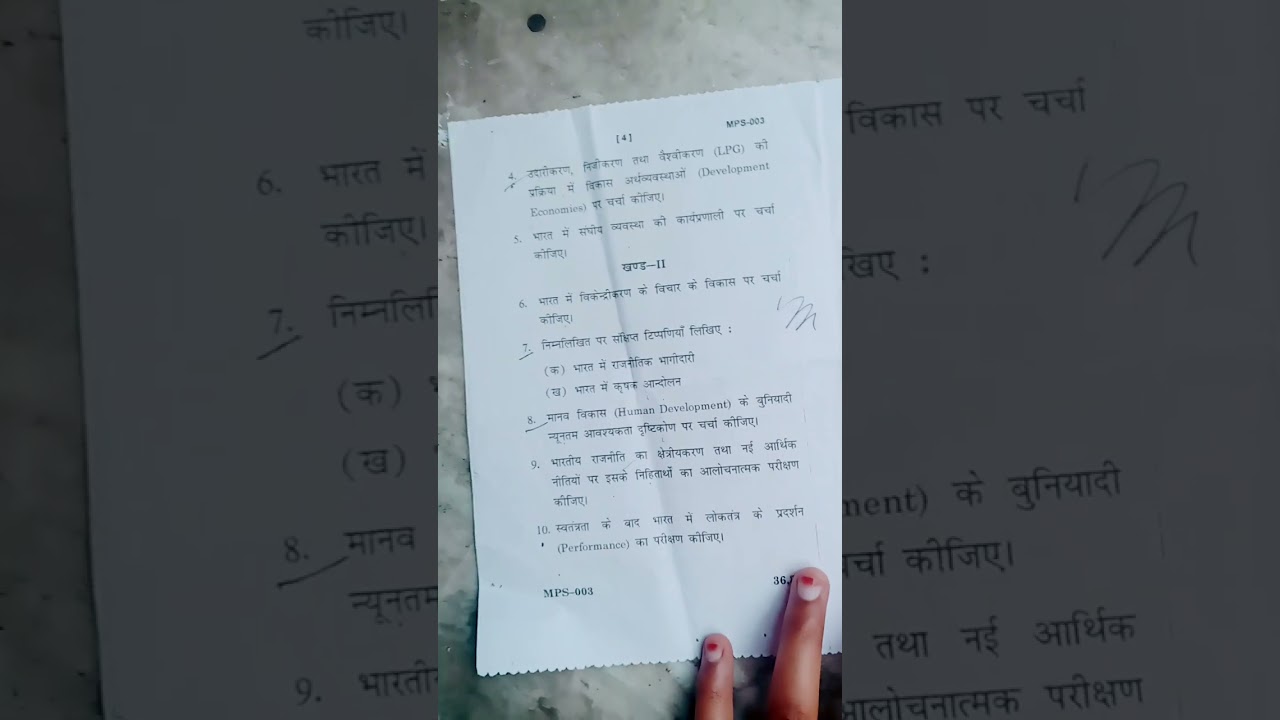 [4]
MPS-003
4. उदारीकरण, निजीकरण तथा वैश्वीकरण (LPG) की
प्रक्रिया में विकास अर्थव्यवस्थाओं (Development
Economies) पर चर्चा कीजिए।
5. भारत में संघीय व्यवस्था की कार्यप्रणाली पर चर्चा
कीजिए।
खण्ड–II
6. भारत में विकेन्द्रीकरण के विचार के विकास पर चर्चा
कीजिए।
7. निम्नलिखित पर संक्षिप्त टिप्पणियाँ लिखिए :
(क) भारत में राजनीतिक भागीदारी
(ख) भारत में कृषक आन्दोलन
8. मानव विकास (Human Development) के बुनियादी
न्यूनतम आवश्यकता दृष्टिकोण पर चर्चा कीजिए।
9. भारतीय राजनीति का क्षेत्रीयकरण तथा नई आर्थिक
नीतियों पर इसके निहितार्थों का आलोचनात्मक परीक्षण
कीजिए।
10. स्वतंत्रता के बाद भारत में लोकतंत्र के प्रदर्शन
(Performance) का परीक्षण कीजिए।
MPS–003